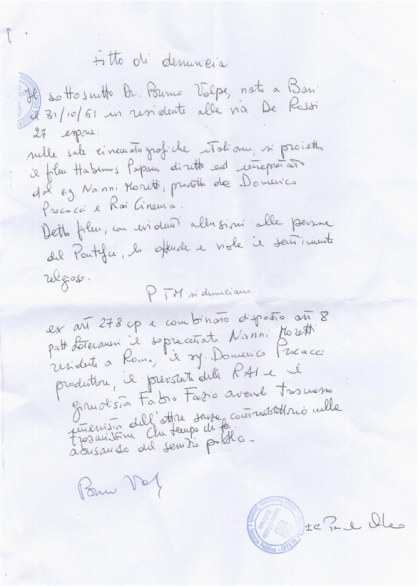 Atto di denuncia
Il sottoscritto Dr. Bruno Volpe, nato a Bari
il 31/10/61 in residente alla via De Rossi
27 espone:
nelle sale cinematografiche italiane, si proietta
il film Habemus Papam diretto ed interpretato
dal sig Nanni Moretti, prodotto da Domenico
Procacci e Rai Cinema.
Detto film, con evidenti allusioni alla persona
del Pontefice, lo offende e viola il sentimento
religioso.
PTM si denunciano
ex art 278 cp e combinato disposto art 8
patti Lateranensi il sopracitato Nanni Moretti
residente a Roma, il sig. Domenico Procacci
produttore, il presidente della RAI e il
giornalista Fabio Fazio avendo trasmesso
intervista dell'attore senza contraddittorio nella
trasmissione Che tempo che fa
abusando del servizio pubblico.